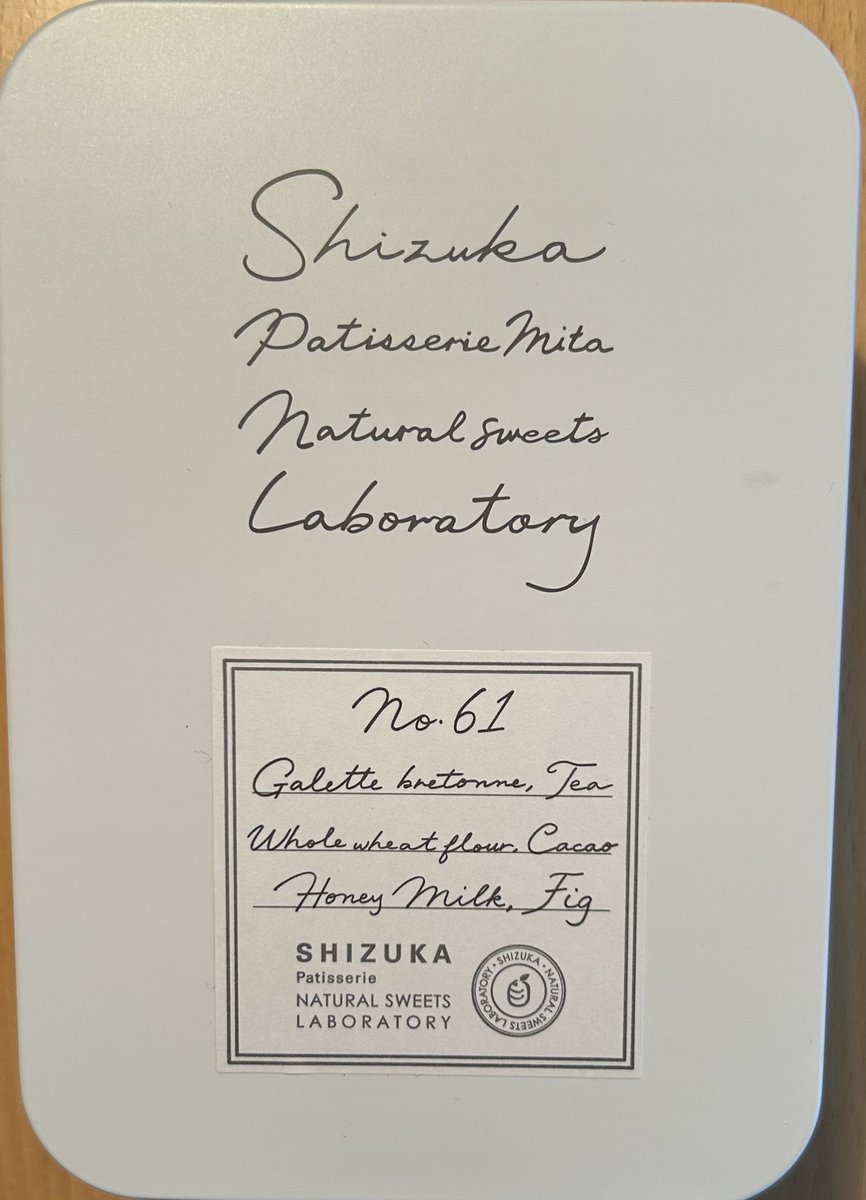 Shizuka
Patisserie Mita
Natural sweets
Laboratory
No.61
Galette bretonne, Tea
Whole wheat flour, Cacao
Honey Milk, Fig
SHIZUKA
Patisserie
NATURAL SWEETS
LABORATORY
• SHIZUKA • NATURAL SWEETS LABORATORY